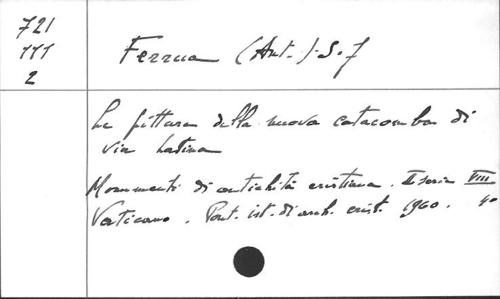 721
777
2
Ferrua (Ant.). S. J
Le pitture della nuova catacomba di
via Latina
Monumenti di antichità cristiana. II seria VIII
Vaticano. Pont. ist. di arch. crist. 1960. 40